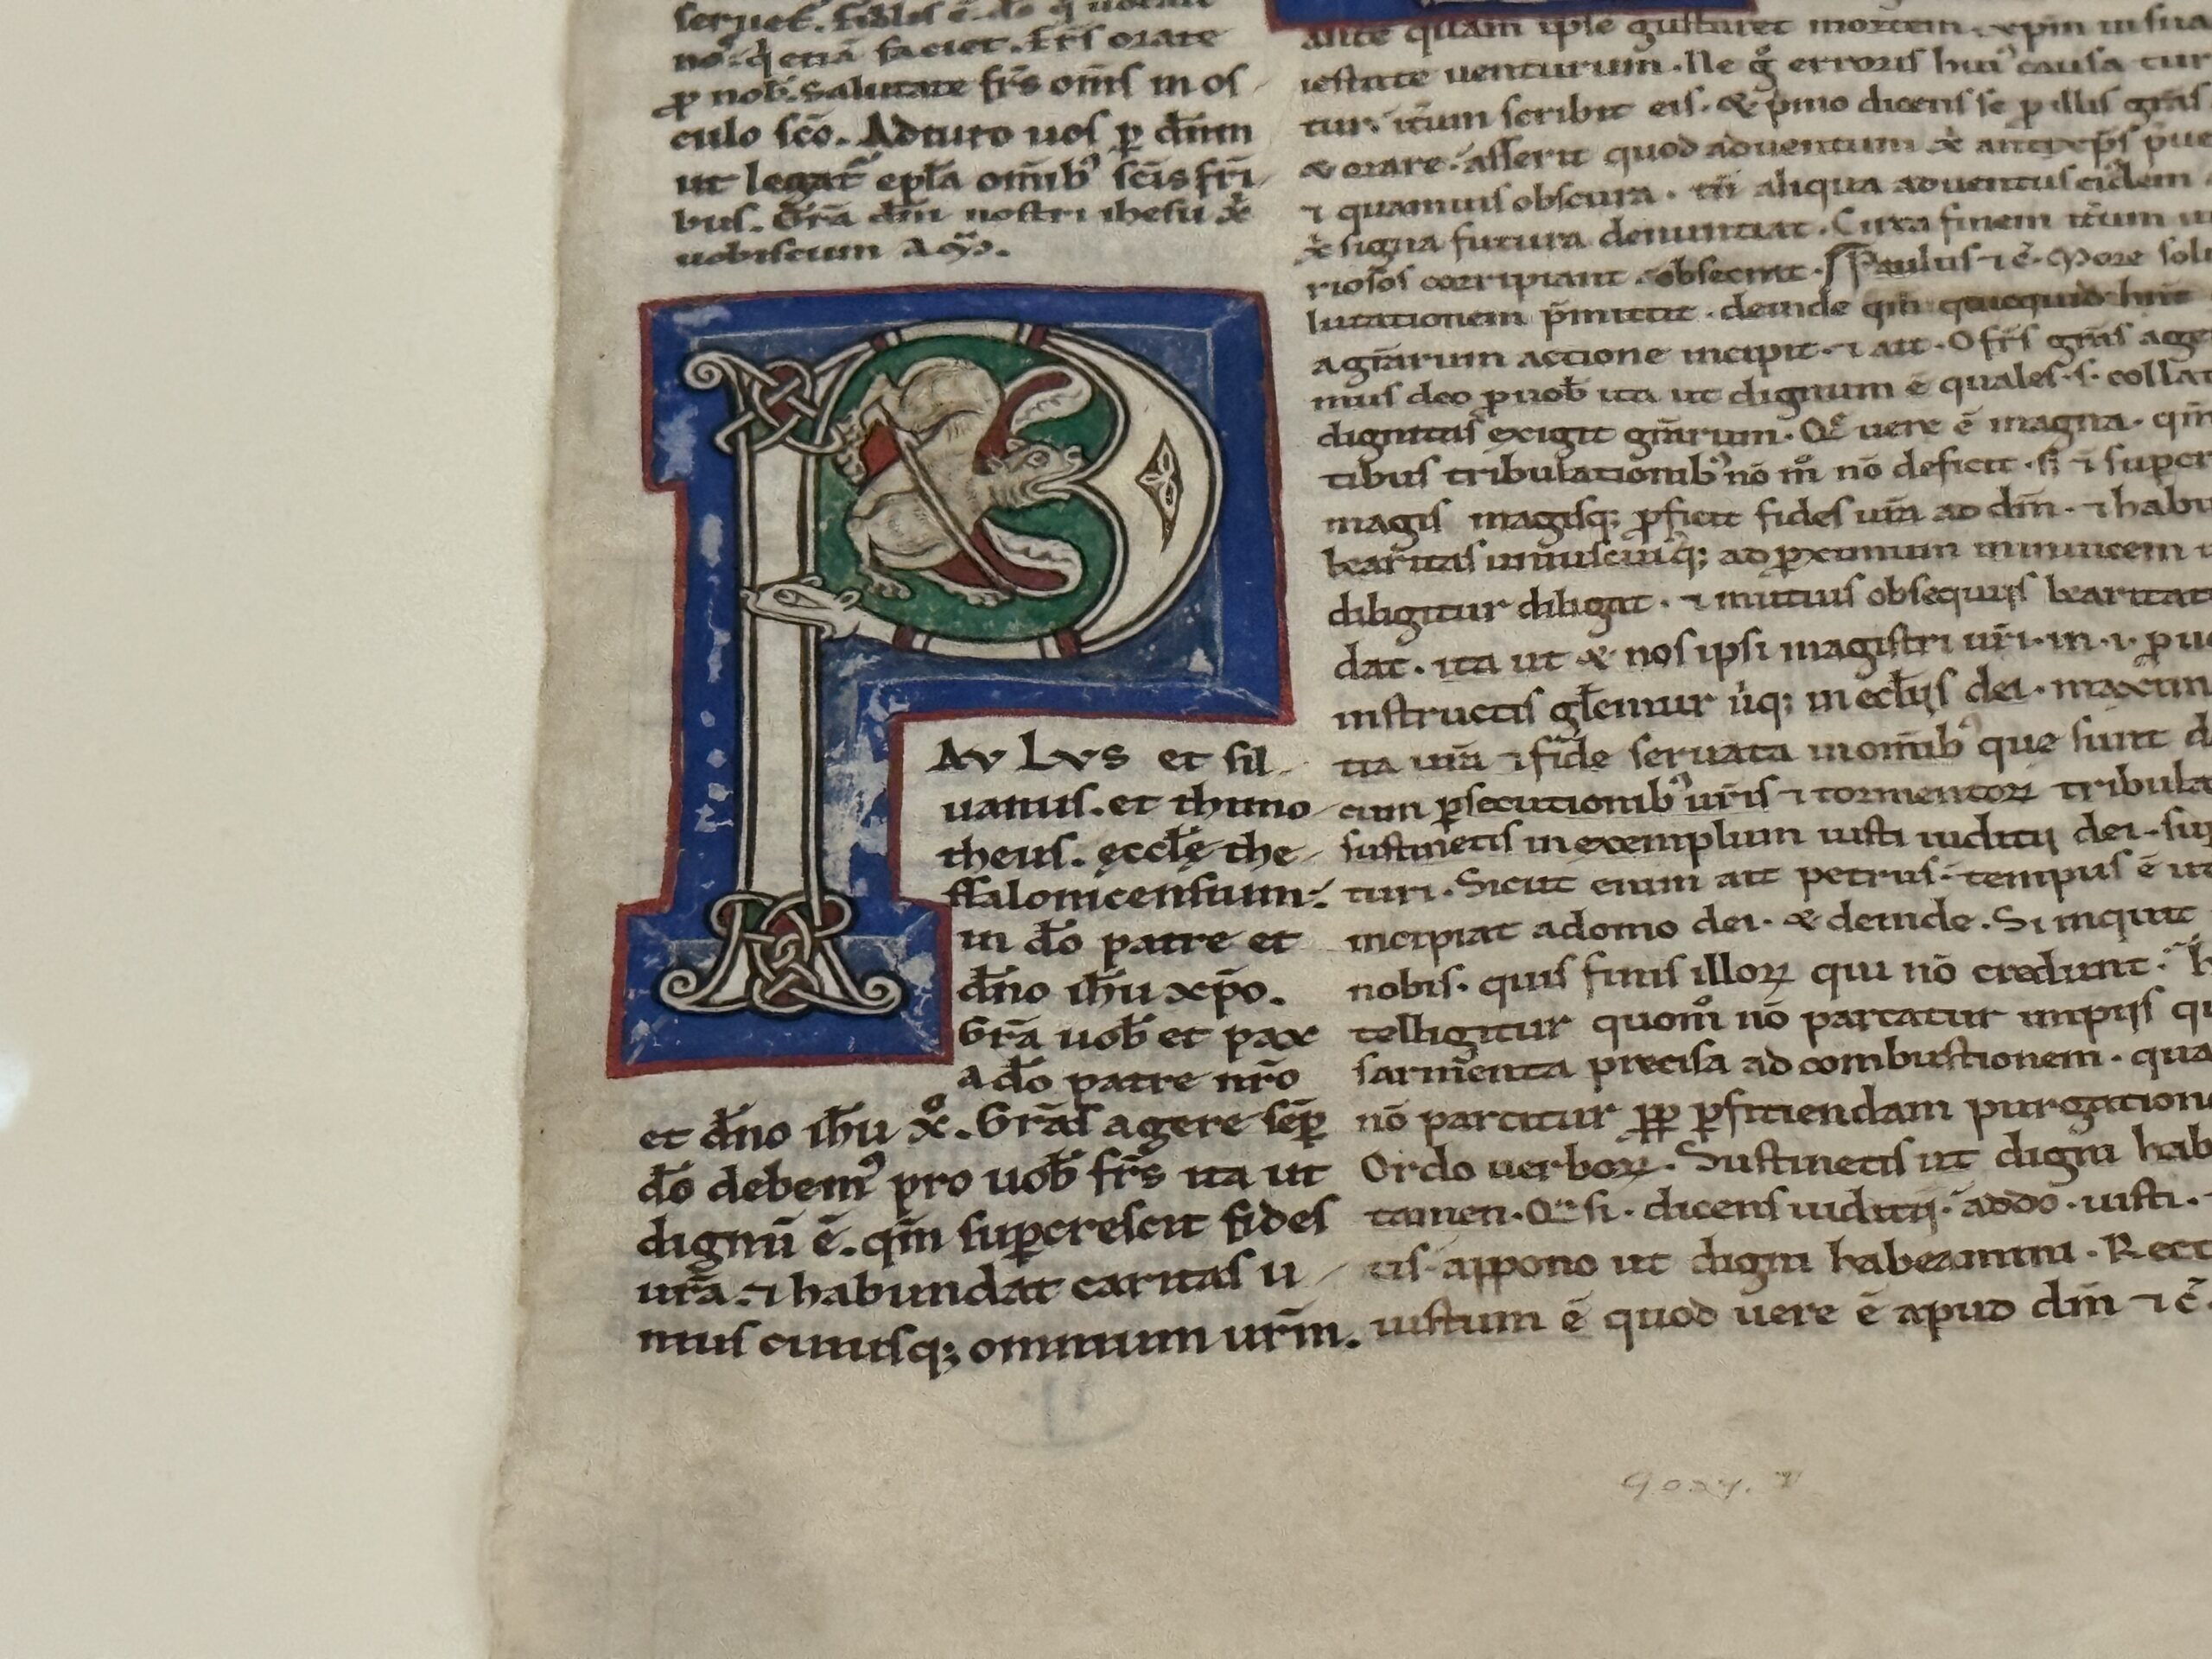 seruet. fidelis ē. dō q̄ uocauit
nos. q̄ etiā faciet. Fr̄s orate
ꝓ nob̄. Salutate fr̄s om̄s in os
culo sc̄o. Adiuro uos ꝑ dn̄m
ut legat̄ ep̄la om̄ibꝰ sc̄is fr̄i
bus. Gr̄a dn̄i nostri ihesu xͥ
uobiscum
PAVLVS et sil
uanus. et thimo
theus. ęccl̄ę the
ssalonicensium.
in dō patre et
dn̄o ih̄u xp̄o.
Gr̄a uob̄ et pax
a dō patre nr̄o
et dn̄o ih̄u xͦ. Gr̄as agere sēꝑ
dō debemꝰ pro uob̄ fr̄s ita ut
dignū ē. qm̄ suꝑcrescit fides
ur̄a. ⁊ habundat caritas u
nius cuiusq; omnium ur̄m.
ante quam ipse gustaret mortem. xp̄m in sua
iestate uenturum. Ne gͦ erroris huiꝰ causa tur
tur. itm̄ scribit eis. & p̄mo dicens se ꝓ illis gr̄as
& orare. asserit quod aduentum
⁊ quamuis obscura. tn̄ aliqua aduentus eiꝰdem
xͥ signa futura denuntiat. Circa finem it̄um
riosos corripiant. obsecrat. Paulus ⁊ c̄. More
lutationem p̄mittit. deinde qm̄ quicquid
a gr̄arum actione incipit. ⁊ ait. O fr̄s gr̄as age
mus deo ꝓ uob̄ ita ut dignum ē quales. s. collat
dignitas exigit gr̄arum. Qͣ uere ē magna. qm̄
tibus tribulationibꝰ nō mͦ nō deficit. s; ⁊ super
magis magisq; ꝓficit fides ur̄a ad dn̄m. ⁊ habu
caritas uniuscuiꝰq; ad ꝓximum inuicem
diligitur diligat. ⁊ mutuis obsequijs
dat. ita ut & nos ipsi magistri ur̄i. in. i. ꝓ
instructis gl̄emur in eccl̄ijs dei. maxim
tia ur̄a ⁊ fide seruata in om̄ibꝰ que sunt
cum ꝑsecutionibꝰ ur̄is ⁊ tormentoꝝ tribula
sustinetis in exemplum iusti iudicij dei. su
turi. Sicut enim ait petrus. tempus ē ut
incipiat a domo dei. & deinde. Si inquit
nobis. quis finis illoꝝ qui nō credunt.
telligitur quomͦ nō parcatur impijs qu
sarmenta precisa ad combustionem. qua
nō parcitur ꝓꝑ ꝑficiendam purgation
Ordo uerboꝝ. Sustinetis ut digni hab
tamen. Qͣsi. dicens iudicij. addo. iusti.
tis appono ut digni habeamini. Rect
iustum ē quod uere ē apud dn̄m ⁊ c̄.